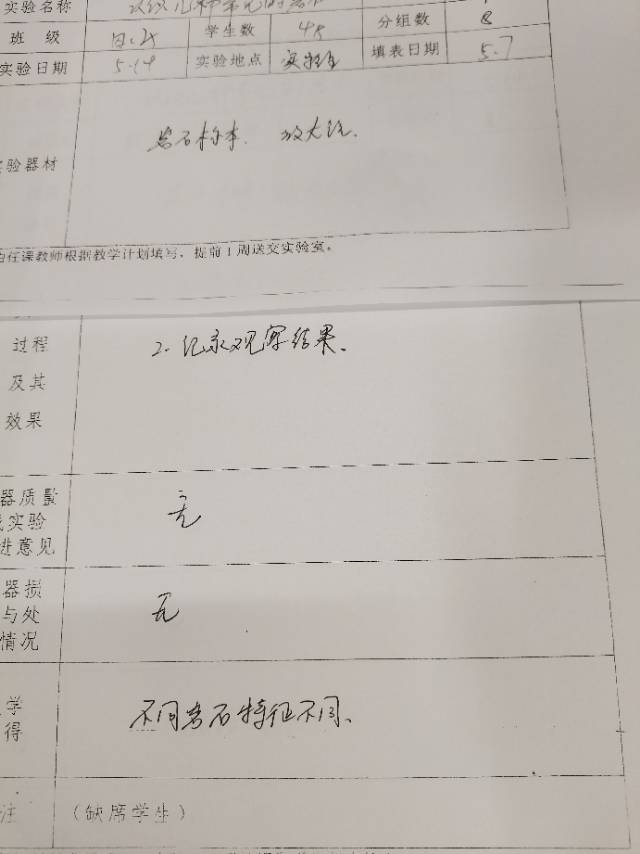 实验名称 认识几种常见的岩石
班 级 四.2 学生数 48 分组数 8
实验日期 5.14 实验地点 实验室 填表日期 5.7
验器材 岩石标本. 放大镜.
任课教师根据教学计划填写，提前1周送交实验室。
过程 2. 记录观察结果.
及其
效果
器质量
实验 无
进意见
器损
与处 无
情况
学 不同岩石特征不同.
得
注 （缺席学生）